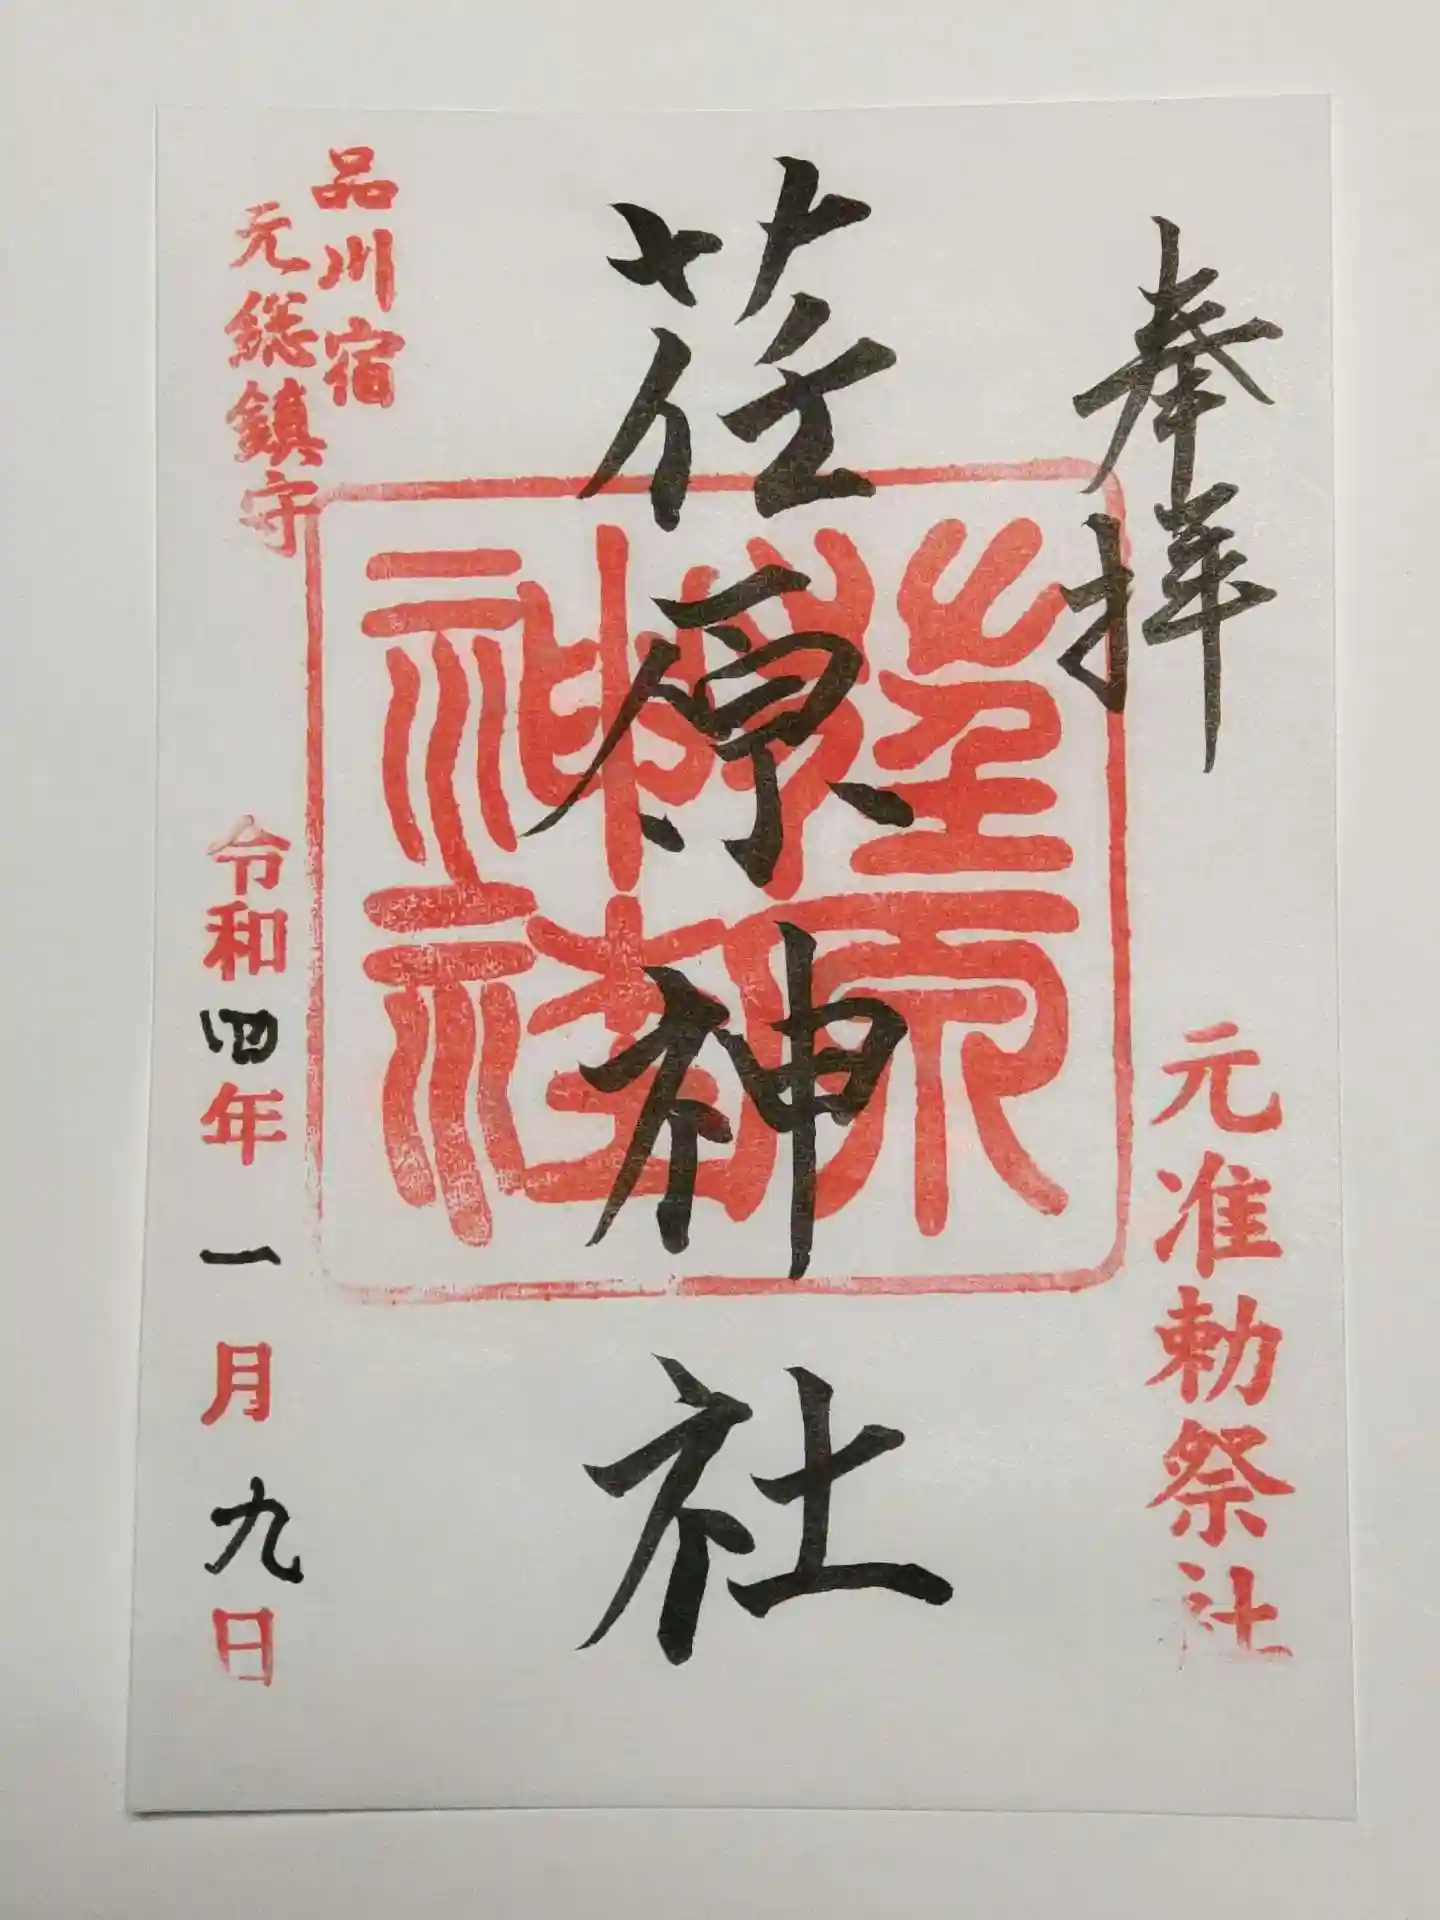 奉拝
元准勅祭社
荏原神社
荏原神社
品川宿
元総鎮守
令和四年一月九日